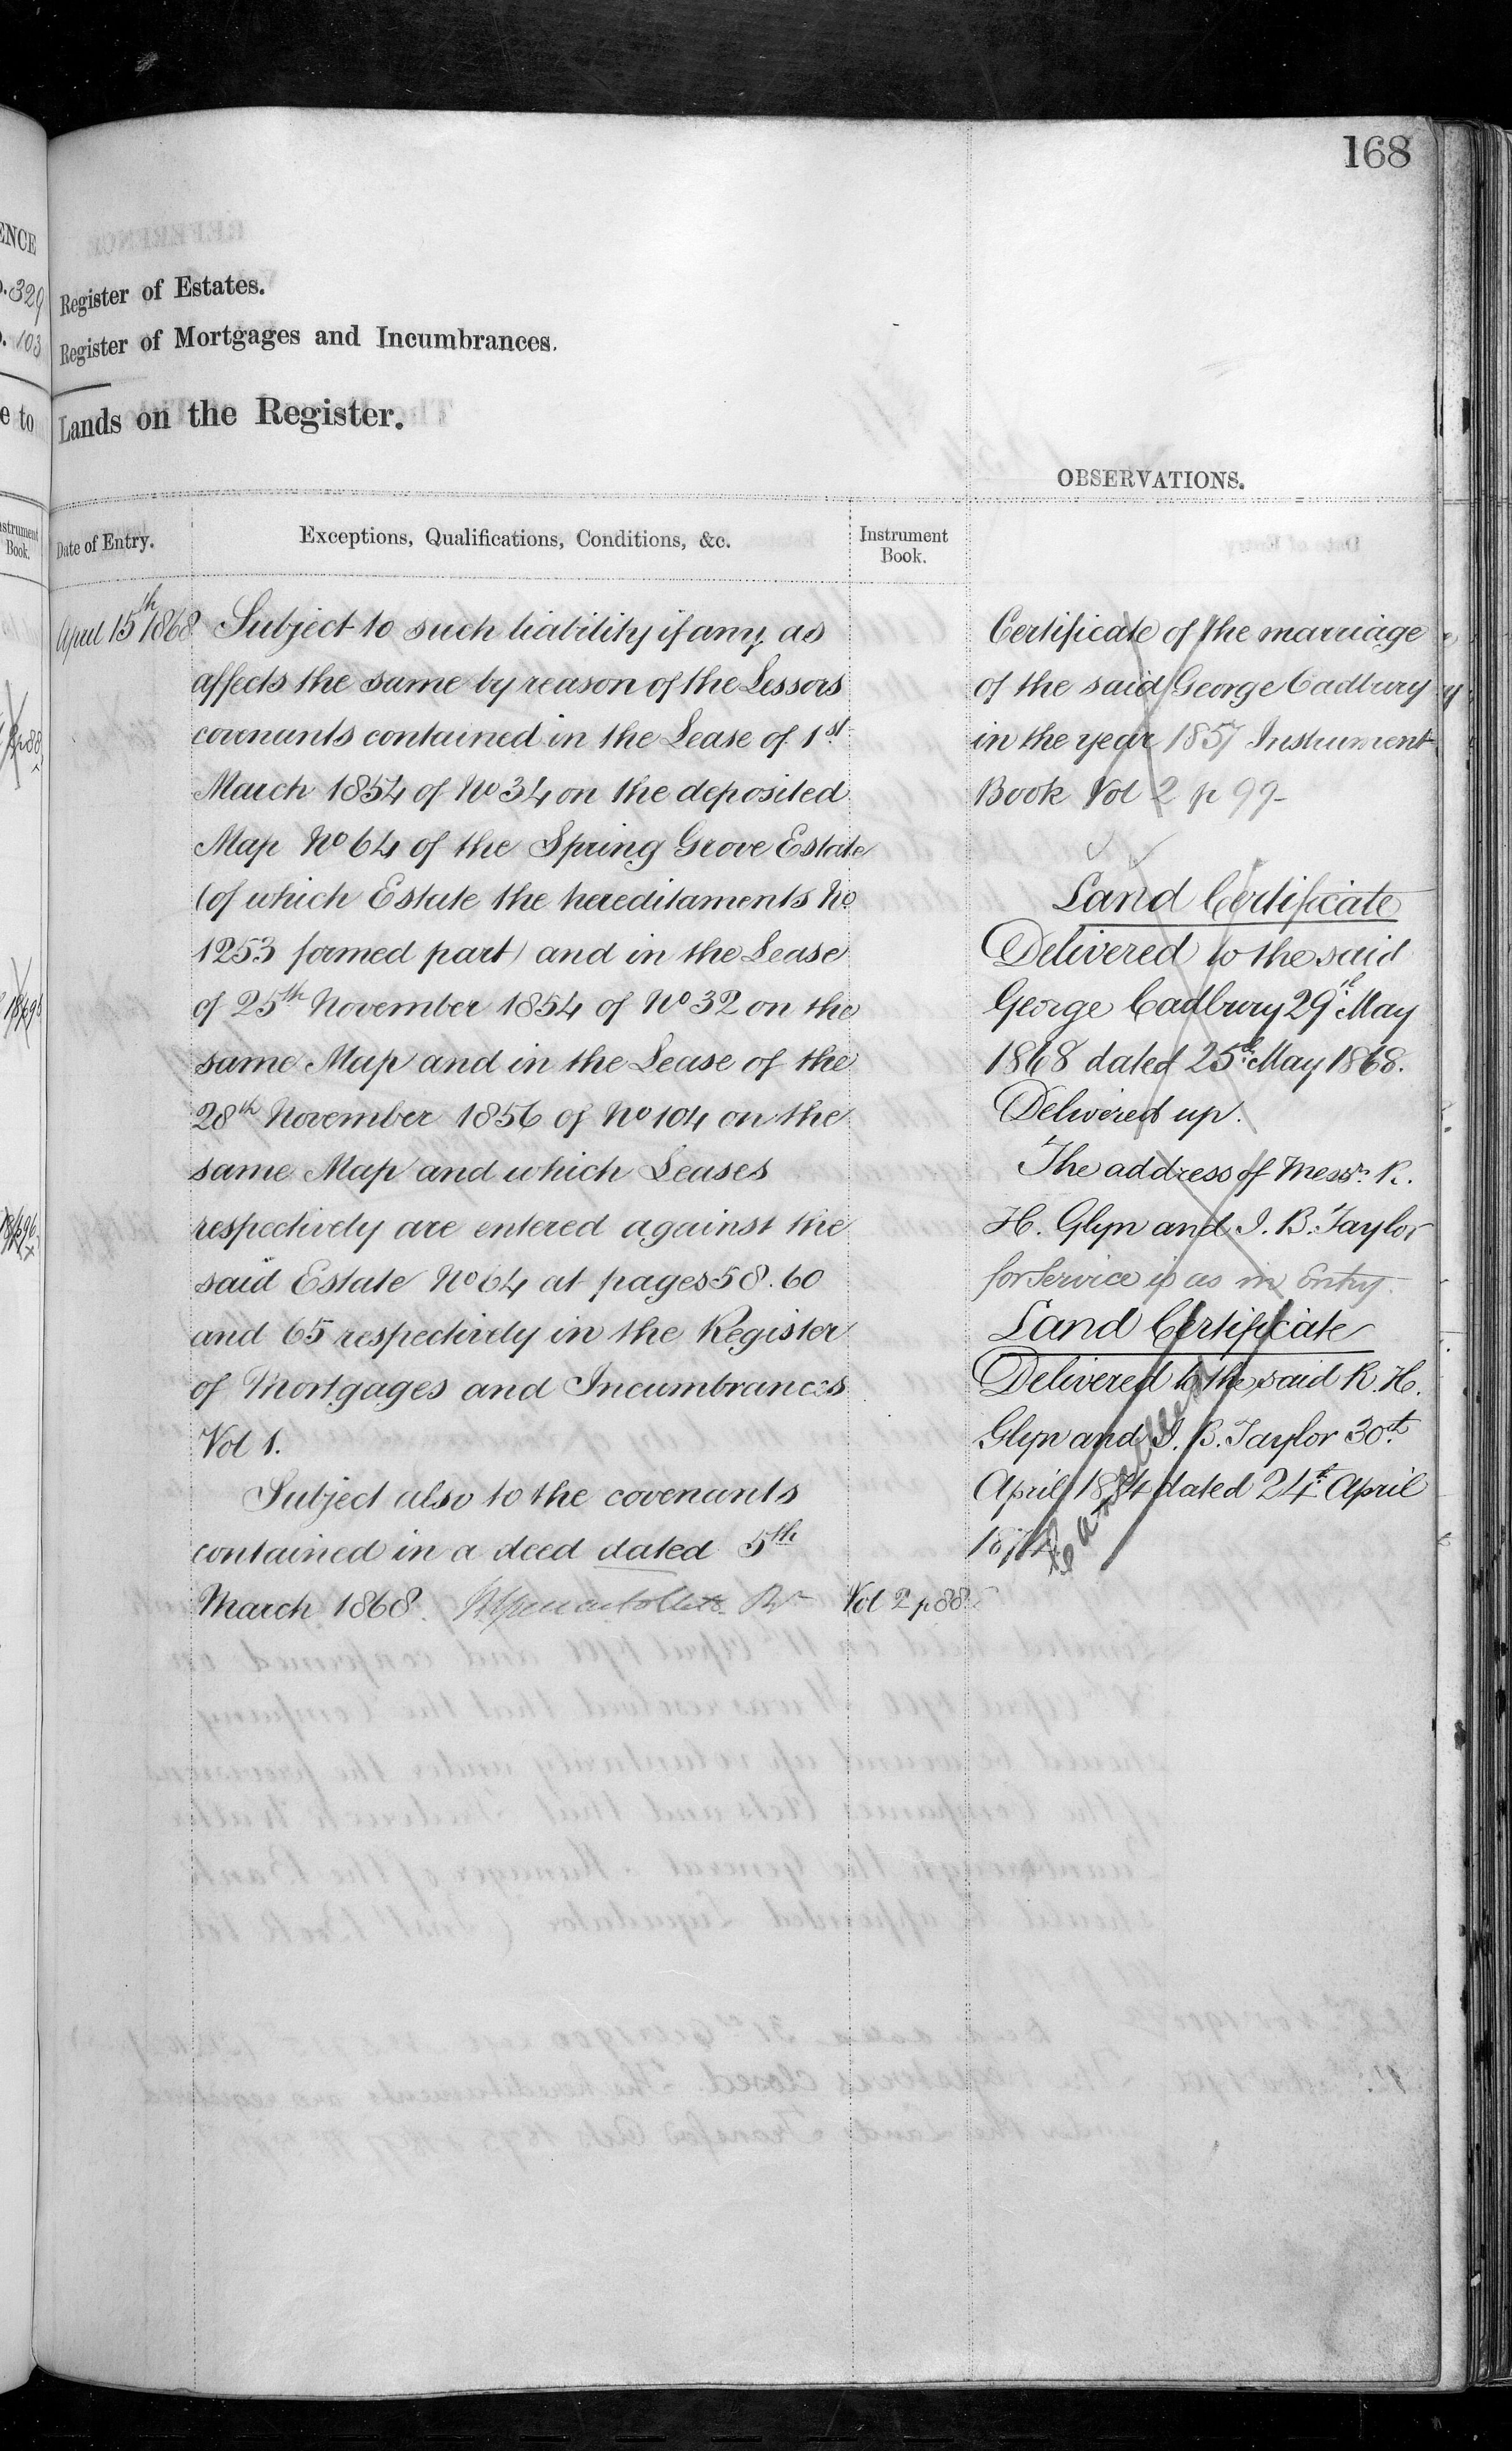 168
ENCE
329
103
e to
Instrument
Book.
Register of Estates.
Register of Mortgages and Incumbrances.
Lands on the Register.
OBSERVATIONS.
Date of Entry.
Exceptions, Qualifications, Conditions, &c.
Instrument
Book.
April 15th 1868
Subject to such liability if any as
affects the same by reason of the Lessors
covenants contained in the Lease of 1st
March 1854 of No 34 on the deposited
Map No 64 of the Spring Grove Estate
(of which Estate the hereditaments No
1253 formed part) and in the Lease
of 25th November 1854 of No 32 on the
same Map and in the Lease of the
28th November 1856 of No 104 on the
same Map and which Leases
respectively are entered against the
said Estate No 64 at pages 58. 60
and 65 respectively in the Register
of Mortgages and Incumbrances
Vol 1.
Subject also to the covenants
contained in a deed dated 5th
March 1868.
Vol 2 p 88
Certificate of the marriage
of the said George Cadbury
in the year 1857 Instrument
Book Vol 2 p 97
Land Certificate
Delivered to the said
George Cadbury 29th May
1868 dated 25th May 1868.
Delivered up.
The address of Messrs R.
H. Glyn and I. B. Taylor
for Service is as in Entry.
Land Certificate
Delivered to the said R. H.
Glyn and I. B. Taylor 30th
April 1874 dated 24th April
1874
Cancelled